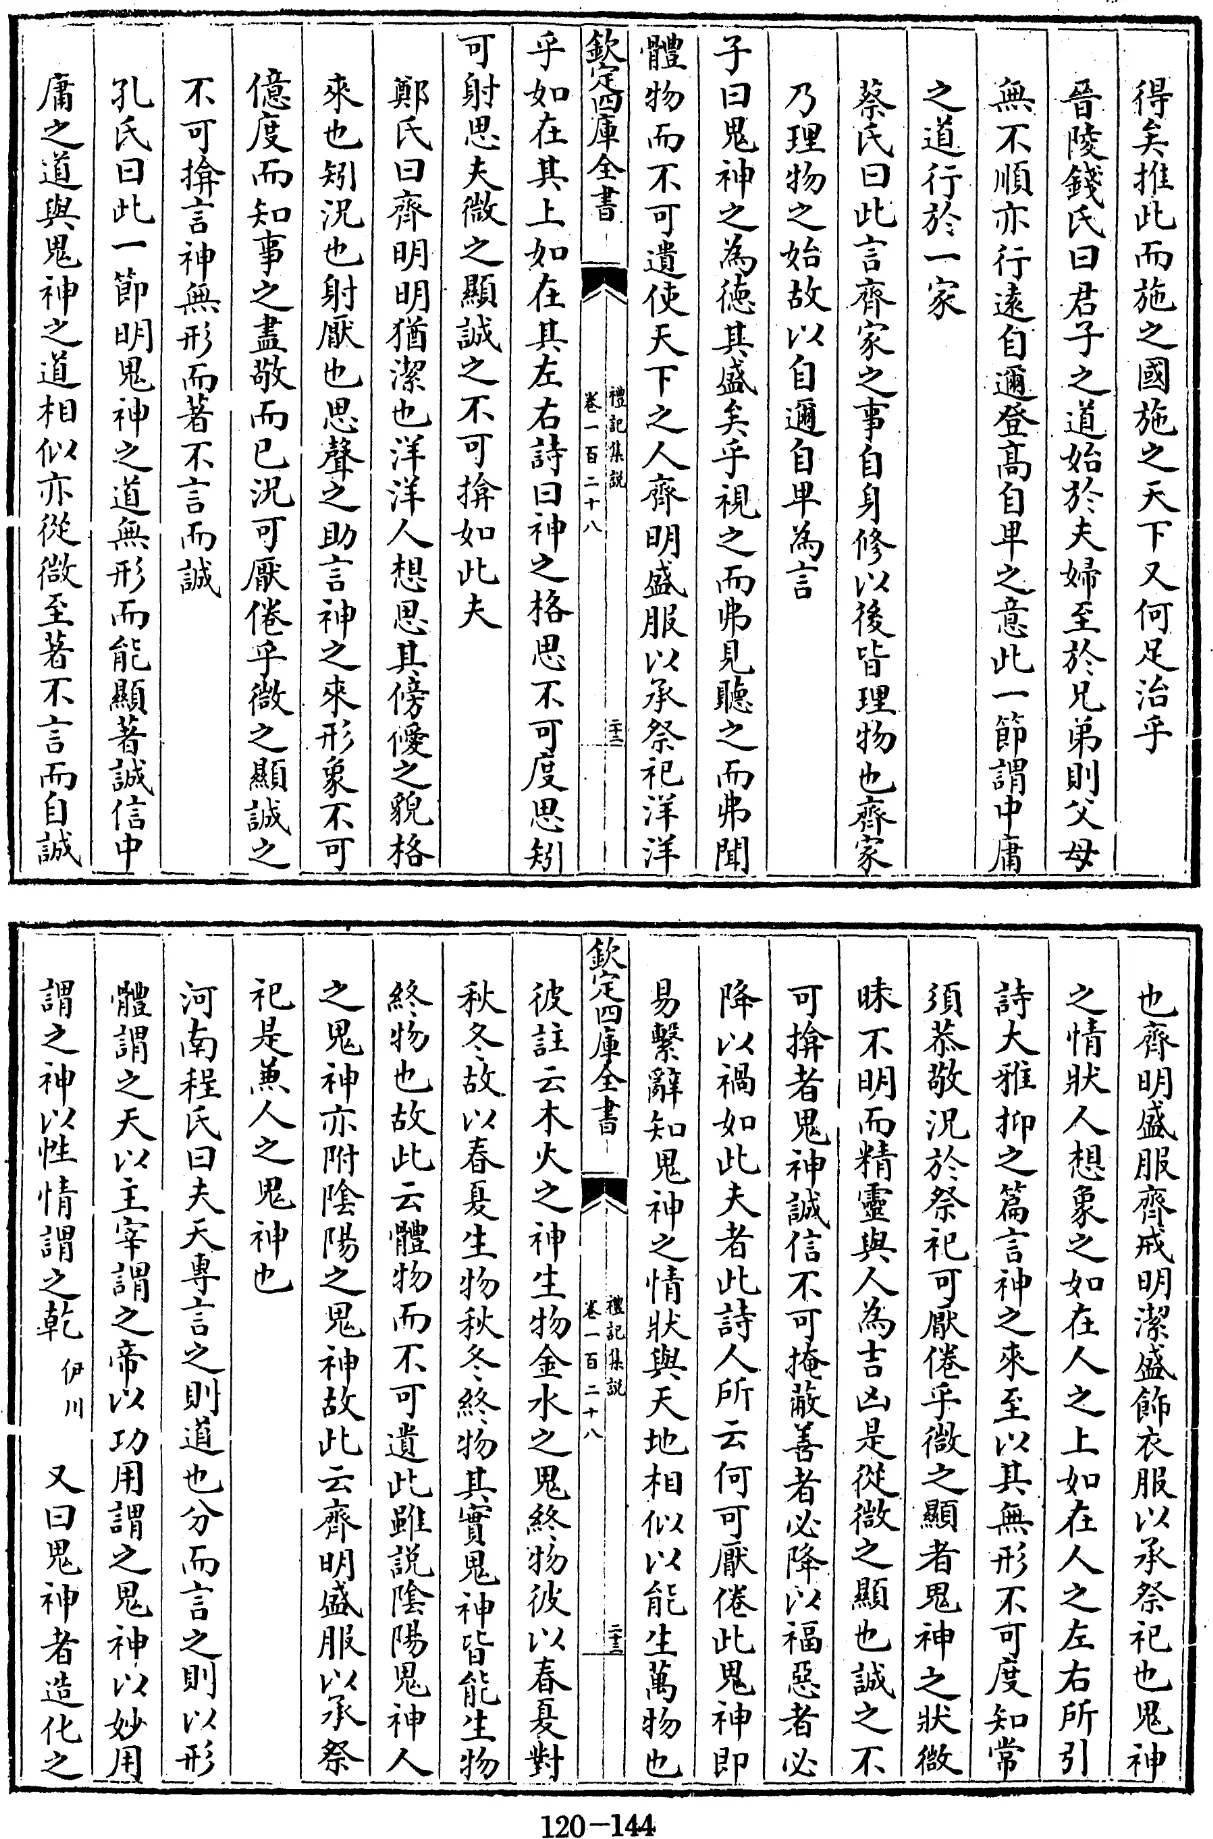 得矣推此而施之國施之天下又何足治乎
晉陵錢氏曰君子之道始於夫婦至於兄弟則父母
無不順亦行遠自邇登高自卑之意此一節謂中庸
之道行於一家
蔡氏曰此言齊家之事自身修以後皆理物也齊家
乃理物之始故以自邇自卑為言
子曰鬼神之為德其盛矣乎視之而弗見聽之而弗聞
體物而不可遺使天下之人齊明盛服以承祭祀洋洋
欽定四庫全書
禮記集説
卷一百二十八
二十二
乎如在其上如在其左右詩曰神之格思不可度思矧
可射思夫微之顯誠之不可揜如此夫
鄭氏曰齊明明猶潔也洋洋人想思其傍僾之貌格
來也矧況也射厭也思聲之助言神之來形象不可
億度而知事之盡敬而已況可厭倦乎微之顯誠之
不可揜言神無形而著不言而誠
孔氏曰此一節明鬼神之道無形而能顯著誠信中
庸之道與鬼神之道相似亦從微至著不言而自誠
也齊明盛服齊戒明潔盛飾衣服以承祭祀也鬼神
之情狀人想象之如在人之上如在人之左右所引
詩大雅抑之篇言神之來至以其無形不可度知常
須恭敬況於祭祀可厭倦乎微之顯者鬼神之狀微
昧不明而精靈與人為吉凶是從微之顯也誠之不
可揜者鬼神誠信不可掩蔽善者必降以福惡者必
降以禍如此夫者此詩人所云何可厭倦此鬼神即
易繫辭知鬼神之情狀與天地相似以能生萬物也
欽定四庫全書
禮記集説
卷一百二十八
二十三
彼註云木火之神生物金水之鬼終物彼以春夏對
秋冬故以春夏生物秋冬終物其實鬼神皆能生物
終物也故此云體物而不可遺此雖説陰陽鬼神人
之鬼神亦附陰陽之鬼神故此云齊明盛服以承祭
祀是兼人之鬼神也
河南程氏曰夫天專言之則道也分而言之則以形
體謂之天以主宰謂之帝以功用謂之鬼神以妙用
謂之神以性情謂之乾伊川 又曰鬼神者造化之
120-144